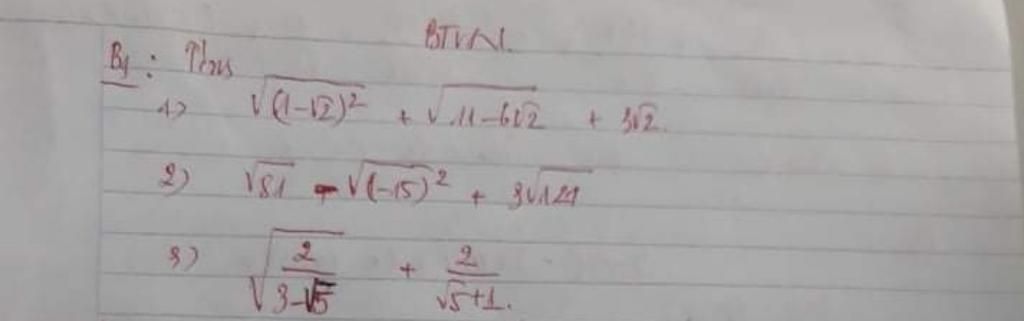 BTVN.
B1: Thus
1) √(1-√2)² + √11-6√2 + 3√2.
2) √81 - √(-15)² + 3√121
3) √2/3-√5 + 2/√5+1.